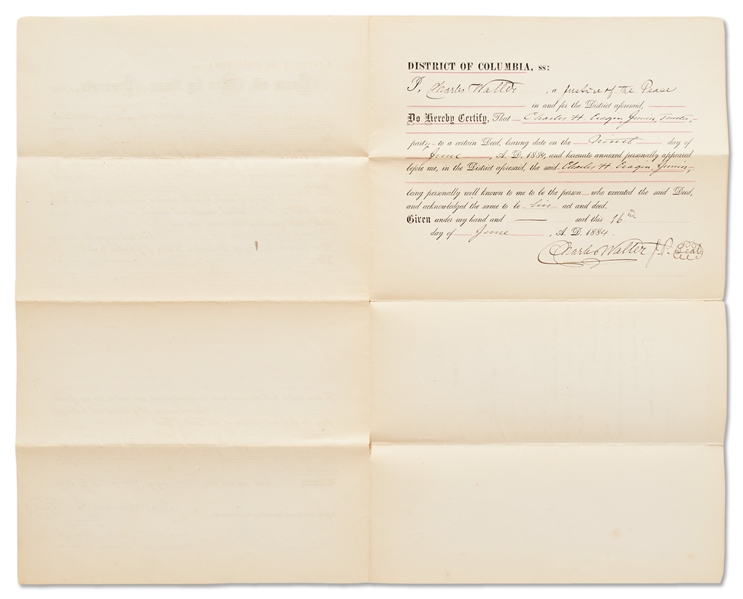 DISTRICT OF COLUMBIA, ss:
I, Charles Walter, a Justice of the Peace
in and for the District aforesaid,
Do Hereby Certify, That Charles H. Cragin Junior,
party to a certain Deed, bearing date on the day of
June, A. D. 1884, and hereunto annexed personally appeared
before me, in the District aforesaid, the said Charles H. Cragin Junior,
being personally well known to me to be the person who executed the said Deed,
and acknowledged the same to be his act and deed.
Given under my hand and seal this 16th
day of June, A. D. 1884.
Charles Walter J.P. Seal